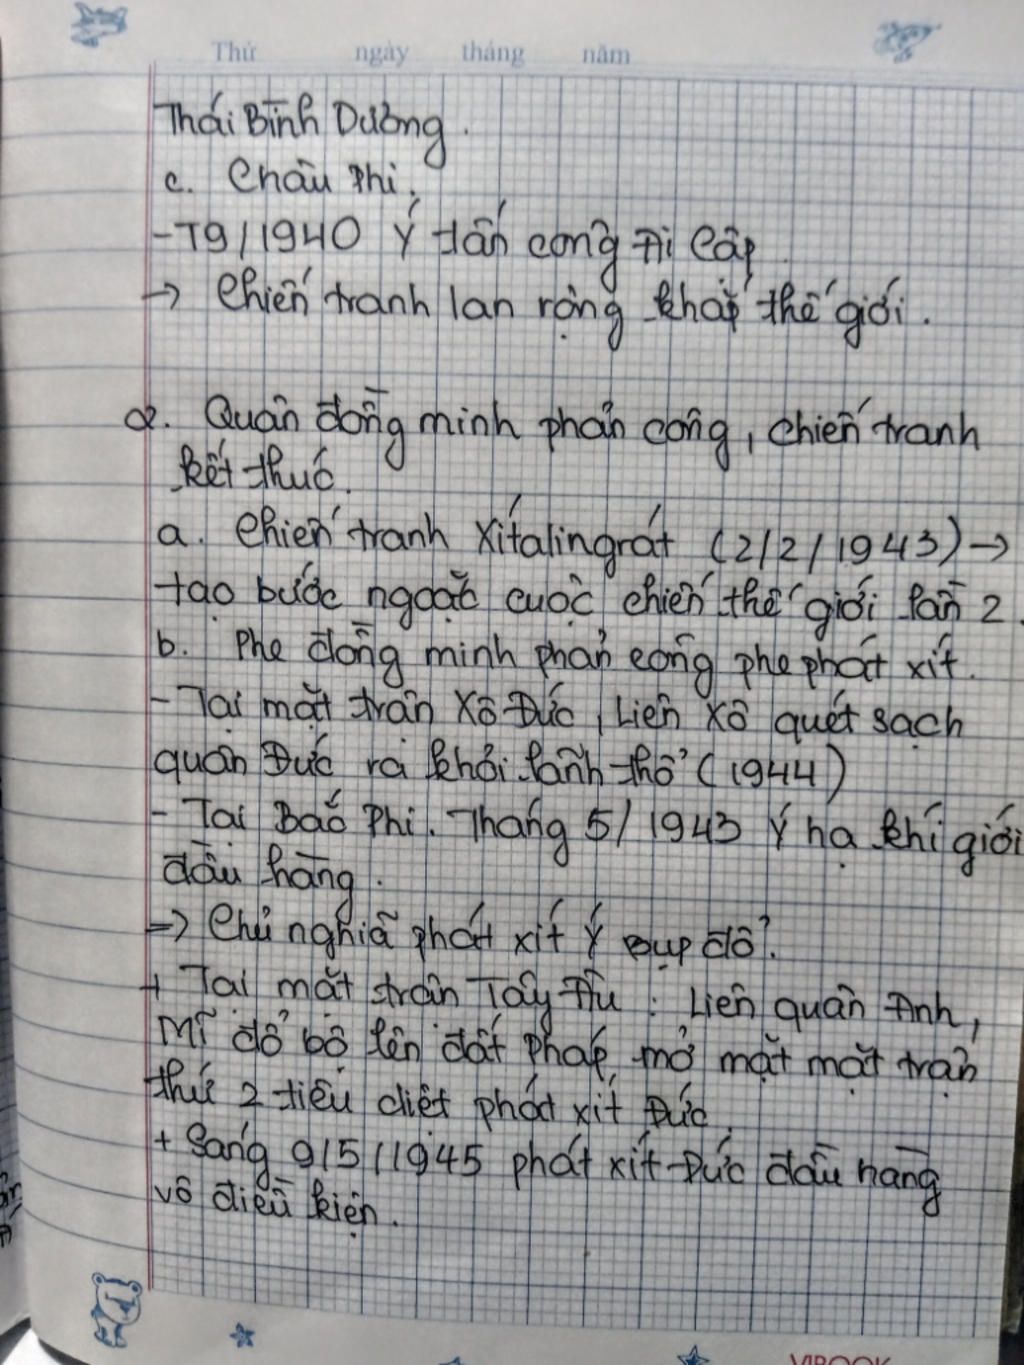 Thứ ngày tháng năm
Thái Bình Dương.
c. Châu Phi.
-T9/1940 Ý tấn công Ai Cập
→ Chiến tranh lan rộng khắp thế giới.
2. Quân đồng minh phản công, chiến tranh
kết thúc.
a. Chiến tranh Xitalingrát (2/2/1943) →
tạo bước ngoặc cuộc chiến thế giới lần 2.
b. Phe đồng minh phản công phe phát xít.
- Tại mặt trận Xô-Đức, Liên Xô quét sạch
quân Đức ra khỏi lãnh thổ (1944)
- Tại Bắc Phi. Tháng 5/1943 Ý hạ khí giới
đầu hàng.
=> Chủ nghĩa phát xít Ý sụp đổ.
+ Tại mặt trận Tây Âu: Liên quân Anh,
Mĩ đổ bộ lên đất Pháp, mở mặt mặt trận
thứ 2 tiêu diệt phát xít Đức.
+ Sáng 9/5/1945 phát xít Đức đầu hàng
vô điều kiện.
VIBOOK